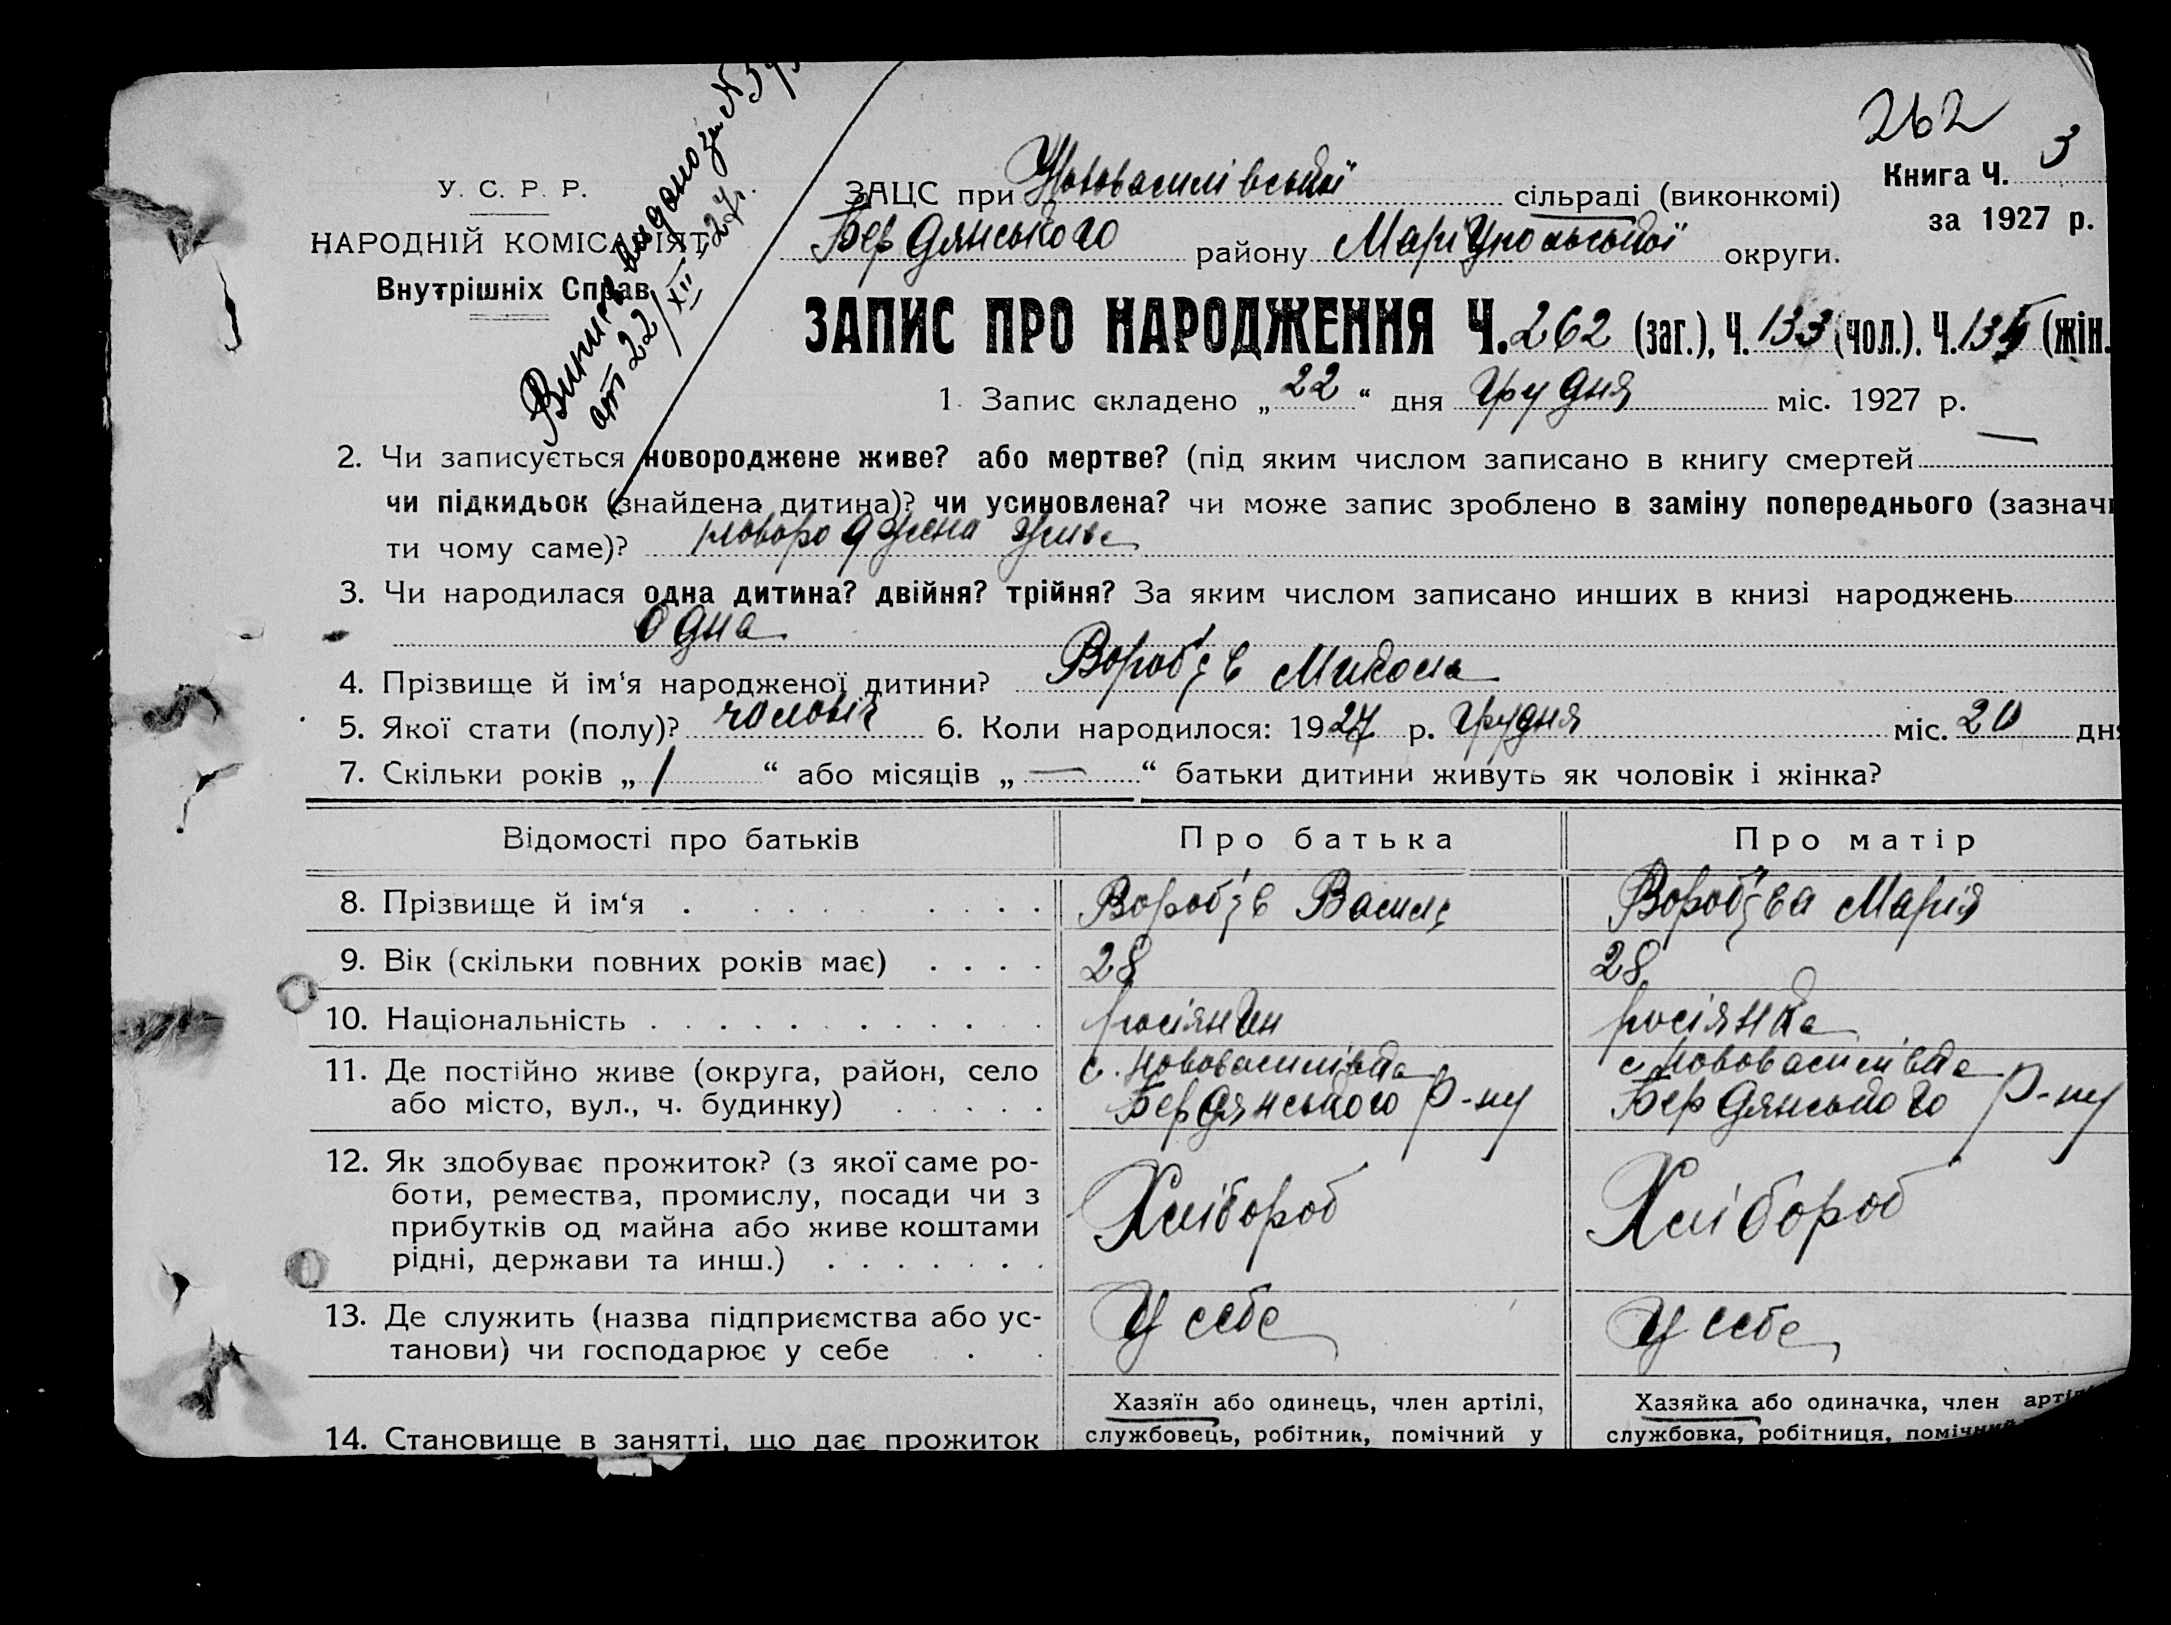 262
Книга Ч. 3
за 1927 р.
У. С. Р. Р.
НАРОДНІЙ КОМІСАРІЯТ
Внутрішніх Справ
Випись видано за №
от 22/XII-27 г.
ЗАЦС при Нововасилівської сільраді (виконкомі)
Бердянського району Маріупольської округи.
ЗАПИС ПРО НАРОДЖЕННЯ Ч. 262 (заг.), Ч. 133 (чол.). Ч. (жін.
1. Запис складено „ 22 “ дня грудня міс. 1927 р.
2. Чи записується новороджене живе? або мертве? (під яким числом записано в книгу смертей —
чи підкидьок (знайдена дитина)? чи усиновлена? чи може запис зроблено в заміну попереднього (зазначи
ти чому саме)? новороджена живе
3. Чи народилася одна дитина? двійня? трійня? За яким числом записано инших в книзі народжень
одна
4. Прізвище й ім‘я народженої дитини? Вороб'їв Микола
5. Якої стати (полу)? чоловіч 6. Коли народилося: 1927 р. грудня міс. 20 дня
7. Скільки років „ 1 “ або місяців „ — “ батьки дитини живуть як чоловік і жінка?
Відомості про батьків Про батька Про матір
8. Прізвище й ім‘я Вороб'їв Василь Вороб'їва Марія
9. Вік (скільки повних років має) 28 28
10. Національність росіянин росіянка
11. Де постійно живе (округа, район, село с. Нововасилівка с. Нововасилівка
або місто, вул., ч. будинку) Бердянського р-ну Бердянського р-ну
12. Як здобуває прожиток? (з якої саме ро-
боти, ремества, промислу, посади чи з Хлібороб Хлібороб
прибутків од майна або живе коштами
рідні, держави та инш.)
13. Де служить (назва підприємства або ус- У себе У себе
танови) чи господарює у себе
Хазяїн або одинець, член артілі, Хазяйка або одиначка, член артілі
14. Становище в занятті, що дає прожиток службовець, робітник, помічний у службовка, робітниця, помічний